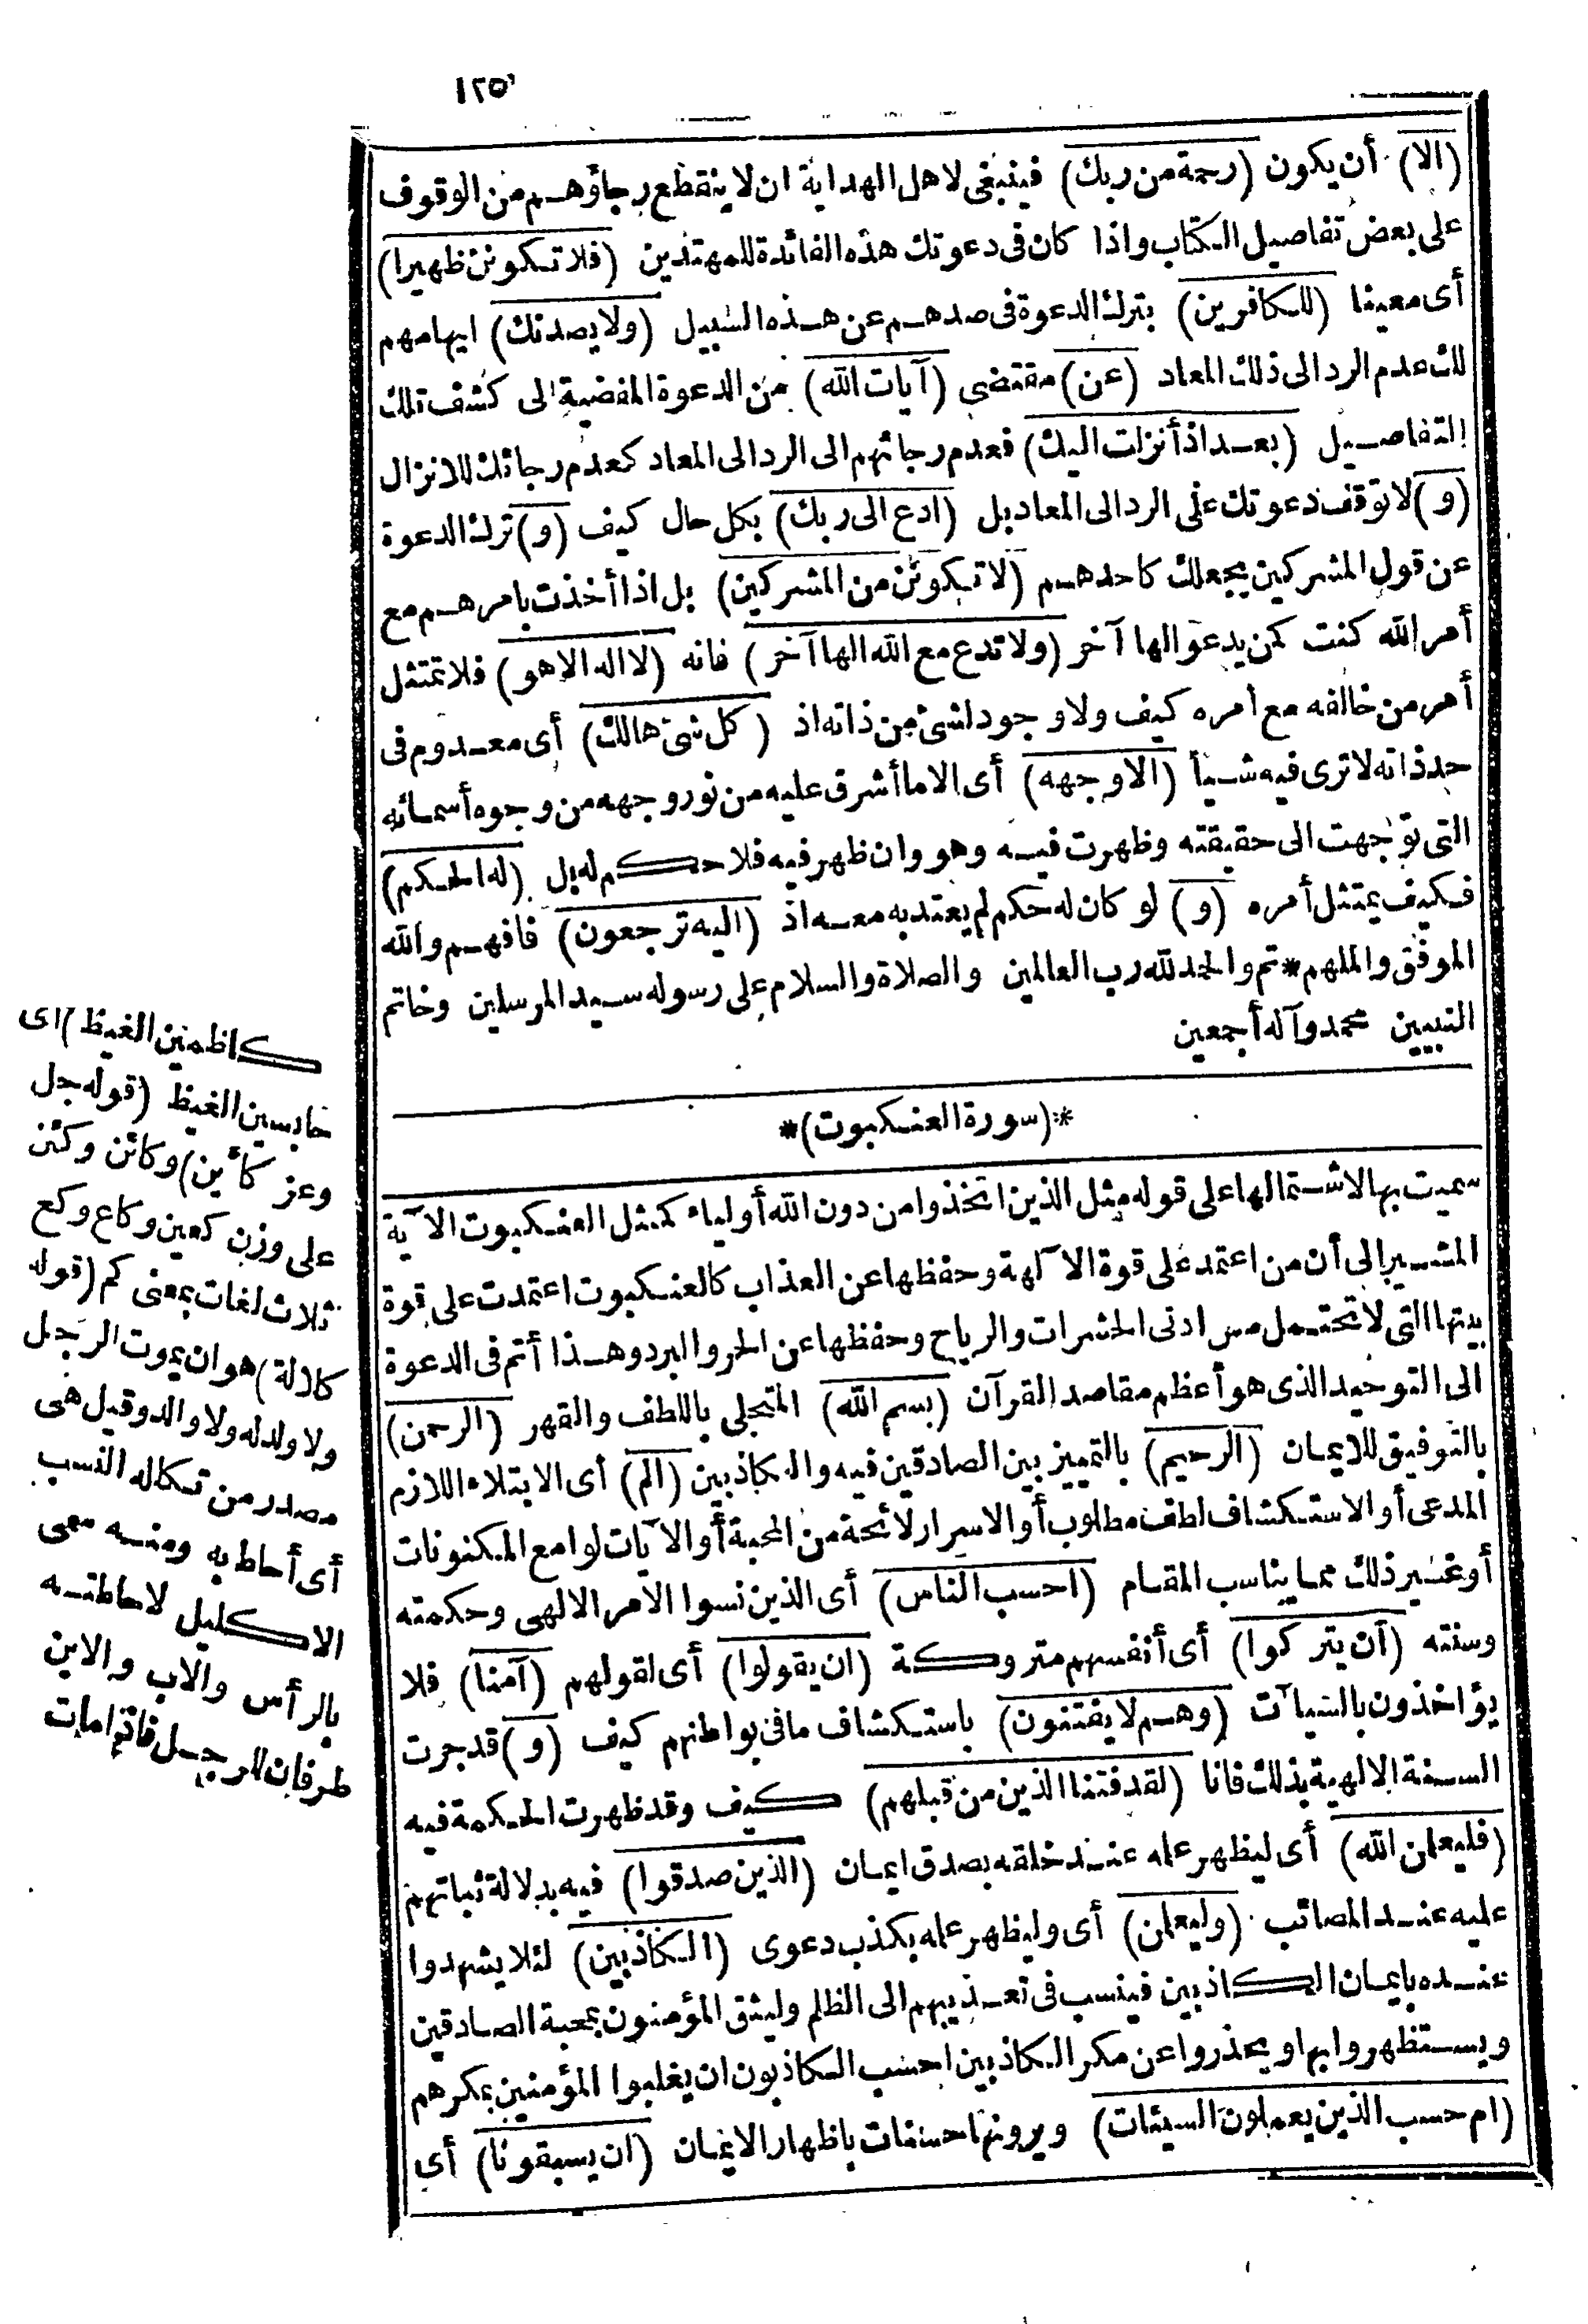 ١٢٥
(الا) أن يكون (رحمة من ربك) فينبغى لاهل الهداية ان لا ينقطع رجاؤهم من الوقوف
على بعض تفاصيل الكتاب واذا كان فى دعوتك هذه الفائدة للمهتدين (فلا تكونن ظهيرا)
أى معينا (للكافرين) بترك الدعوة فى صدهم عن هذه السبيل (ولا يصدنك) ايهامهم
لك عدم الرد الى ذلك المعاد (عن) مقتضى (آيات الله) من الدعوة المفضية الى كشف تلك
التفاصيل (بعد اذ أنزلت اليك) فعدم رجائهم الى الرد الى المعاد كعدم رجائك للانزال
(و) لا توقف دعوتك على الرد الى المعاد بل (ادع الى ربك) بكل حال كيف (و) ترك الدعوة
عن قول المشركين يجعلك كاحدهم (لا تكونن من المشركين) بل اذا أخذت بامرهم مع
أمر الله كنت كمن يدعو الها آخر (ولا تدع مع الله الها آخر) فانه (لا اله الا هو) فلا تمتثل
أمر من خالفه مع أمره كيف ولا وجود لشئ من ذاته اذ (كل شئ هالك) أى معدوم فى
حد ذاته لا ترى فيه شيأ (الا وجهه) أى الا ما أشرق عليه من نور وجهه من وجوه أسمائه
التى توجهت الى حقيقته وظهرت فيه وهو وان ظهر فيه فلا حكم له بل (له الحكم)
فكيف يمتثل أمره (و) لو كان له حكم لم يعتد به معه اذ (اليه ترجعون) فافهم والله
الموفق والملهم * تم والحمد لله رب العالمين والصلاة والسلام على رسوله سيد المرسلين وخاتم
النبيين محمد وآله أجمعين
*(سورة العنكبوت)*
سميت بها لاشتمالها على قوله مثل الذين اتخذوا من دون الله أولياء كمثل العنكبوت الآية
المشير الى أن من اعتمد على قوة الآلهة وحفظها عن العذاب كالعنكبوت اعتمدت على قوة
بيتها التى لا تحتمل مس ادنى الحشرات والرياح وحفظها عن الحر والبرد وهذا أتم فى الدعوة
الى التوحيد الذى هو أعظم مقاصد القرآن (بسم الله) المتجلى باللطف والقهر (الرحمن)
بالتوفيق للايمان (الرحيم) بالتمييز بين الصادقين فيه والكاذبين (الم) أى الابتلاء اللازم
للمدعى أو الاستكشاف لطف مطلوب أو الاسرار لائحة من المحبة أو الآيات لوامع المكنونات
أو غير ذلك مما يناسب المقام (احسب الناس) أى الذين نسوا الامر الالهى وحكمته
وسنته (أن يتركوا) أى أنفسهم متروكة (ان يقولوا) أى لقولهم (آمنا) فلا
يؤاخذون بالسيآت (وهم لا يفتنون) باستكشاف ما فى بواطنهم كيف (و) قد جرت
السنة الالهية بذلك فانا (لقد فتنا الذين من قبلهم) كيف وقد ظهرت الحكمة فيه
(فليعلمن الله) أى ليظهر علمه عند خلقه بصدق ايمان (الذين صدقوا) فيه بدلالة ثباتهم
عليه عند المصائب (وليعلمن) أى وليظهر علمه بكذب دعوى (الكاذبين) لئلا يشهدوا
عنده بايمان الكاذبين فينسب فى تعذيبهم الى الظلم وليثق المؤمنون بمحبة الصادقين
ويستظهروا بها ويحذروا عن مكر الكاذبين احسب الكاذبون ان يغلبوا المؤمنين بمكرهم
(ام حسب الذين يعملون السيئات) ويرونها حسنات باظهار الايمان (ان يسبقونا) أى
كاظمين الغيظ) اى
حابسين الغيظ (قوله جل
وعز كأين) وكائن وكئن
على وزن كعين وكاع وكع
ثلاث لغات بمعنى كم (قوله
كلالة) هو ان يموت الرجل
ولا ولد له ولا والد وقيل هى
مصدر من تكلله النسب
أى أحاط به ومنه سمى
الاكليل لاحاطته
بالرأس والاب والابن
طرفان للرجل فاذا مات